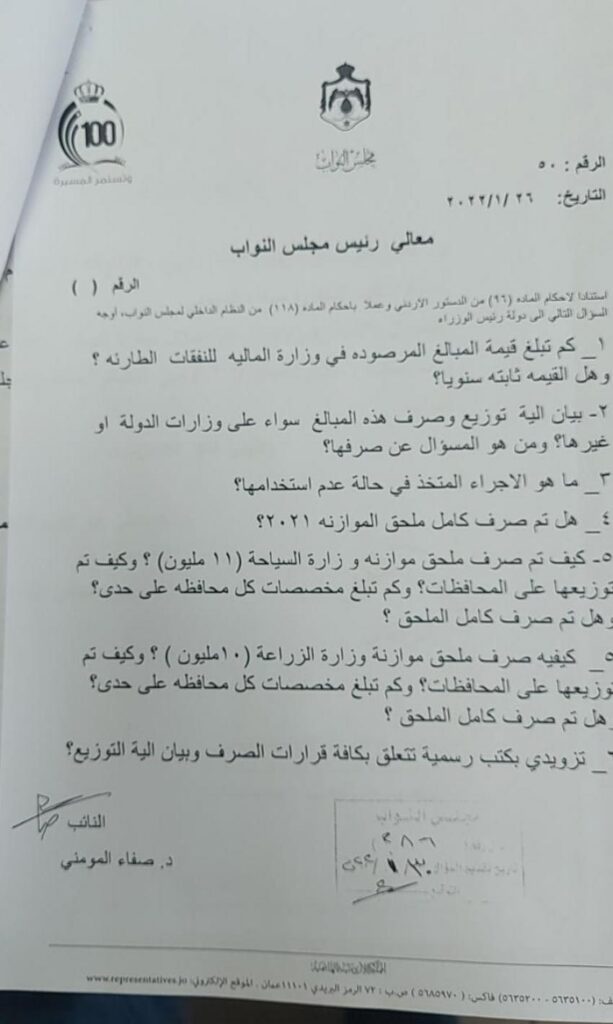 100
وتستمر المسيرة
مجلس النواب
الرقم : ٥٠
التاريخ: ٢٠٢٢/١/٢٦
معالي رئيس مجلس النواب
الرقم ( )
استنادا لاحكام الماده (٩٦) من الدستور الاردني وعملا باحكام الماده (١١٨) من النظام الداخلي لمجلس النواب، اوجه
السؤال التالي الى دولة رئيس الوزراء
١_ كم تبلغ قيمة المبالغ المرصوده في وزارة الماليه للنفقات الطارئه ؟
وهل القيمه ثابته سنويا؟
٢- بيان الية توزيع وصرف هذه المبالغ سواء على وزارات الدولة او
غيرها؟ ومن هو المسؤال عن صرفها؟
٣_ ما هو الاجراء المتخذ في حالة عدم استخدامها؟
٤_ هل تم صرف كامل ملحق الموازنه ٢٠٢١؟
٥- كيف تم صرف ملحق موازنه و زارة السياحة (١١ مليون) ؟ وكيف تم
توزيعها على المحافظات؟ وكم تبلغ مخصصات كل محافظه على حدى؟
وهل تم صرف كامل الملحق ؟
٥_ كيفيه صرف ملحق موازنة وزارة الزراعة (١٠مليون ) ؟ وكيف تم
توزيعها على المحافظات؟ وكم تبلغ مخصصات كل محافظه على حدى؟
وهل تم صرف كامل الملحق ؟
٦_ تزويدي بكتب رسمية تتعلق بكافة قرارات الصرف وبيان الية التوزيع؟
النائب
د. صفاء المومني
مجلس النواب
(٥٦٣٥١٠٠ - ٥٦٣٥٢٠٠) فاكس: (٥٦٨٥٩٧٠) ص.ب : ٧٢ الرمز البريدي ١١١٠١عمان . الموقع الإلكتروني: www.representatives.jo